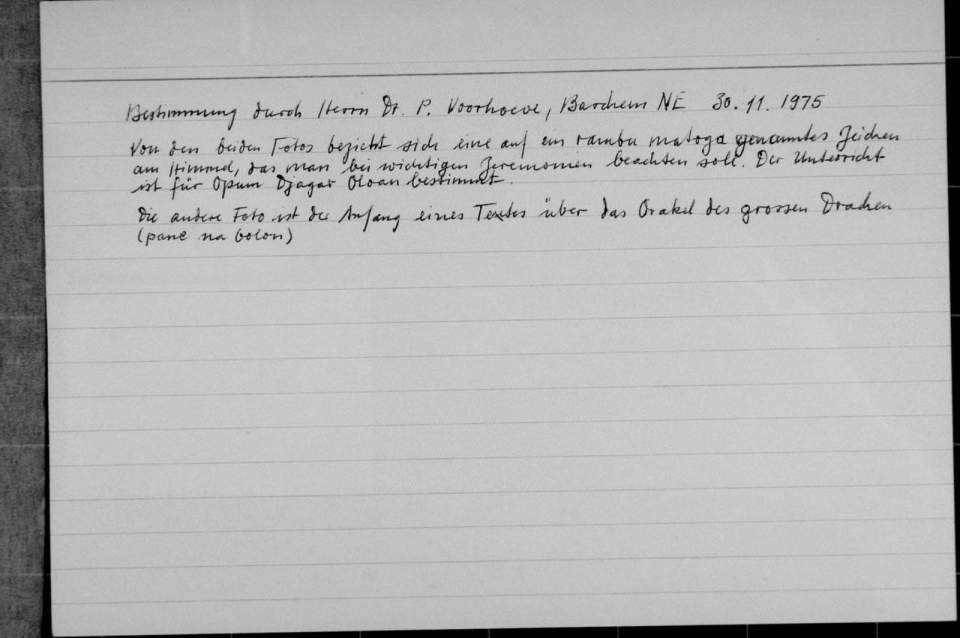 Bestimmung durch Herrn Dr. P. Voorhoeve, Barchem NE 30.11.1975
Von den beiden Fotos bezieht sich eine auf ein rambu matoga genanntes Zeichen
am Himmel, das man bei wichtigen Zeremonien beachten soll. Der Unterricht
ist für Opum Djagar Oloan bestimmt.
Die andere Foto ist der Anfang eines Textes über das Orakel des grossen Drachen
(pane na bolon)